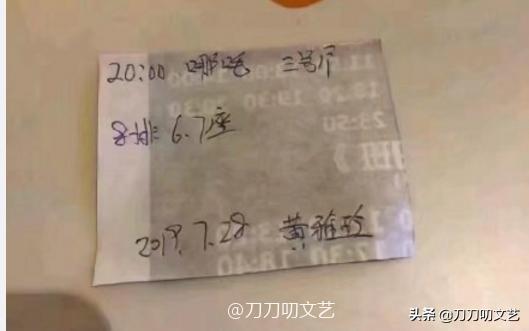 20:00 哪吒 三号厅
8排 6.7座
2019.7.28 黄雅玲
@刀刀叨文艺
头条 @刀刀叨文艺